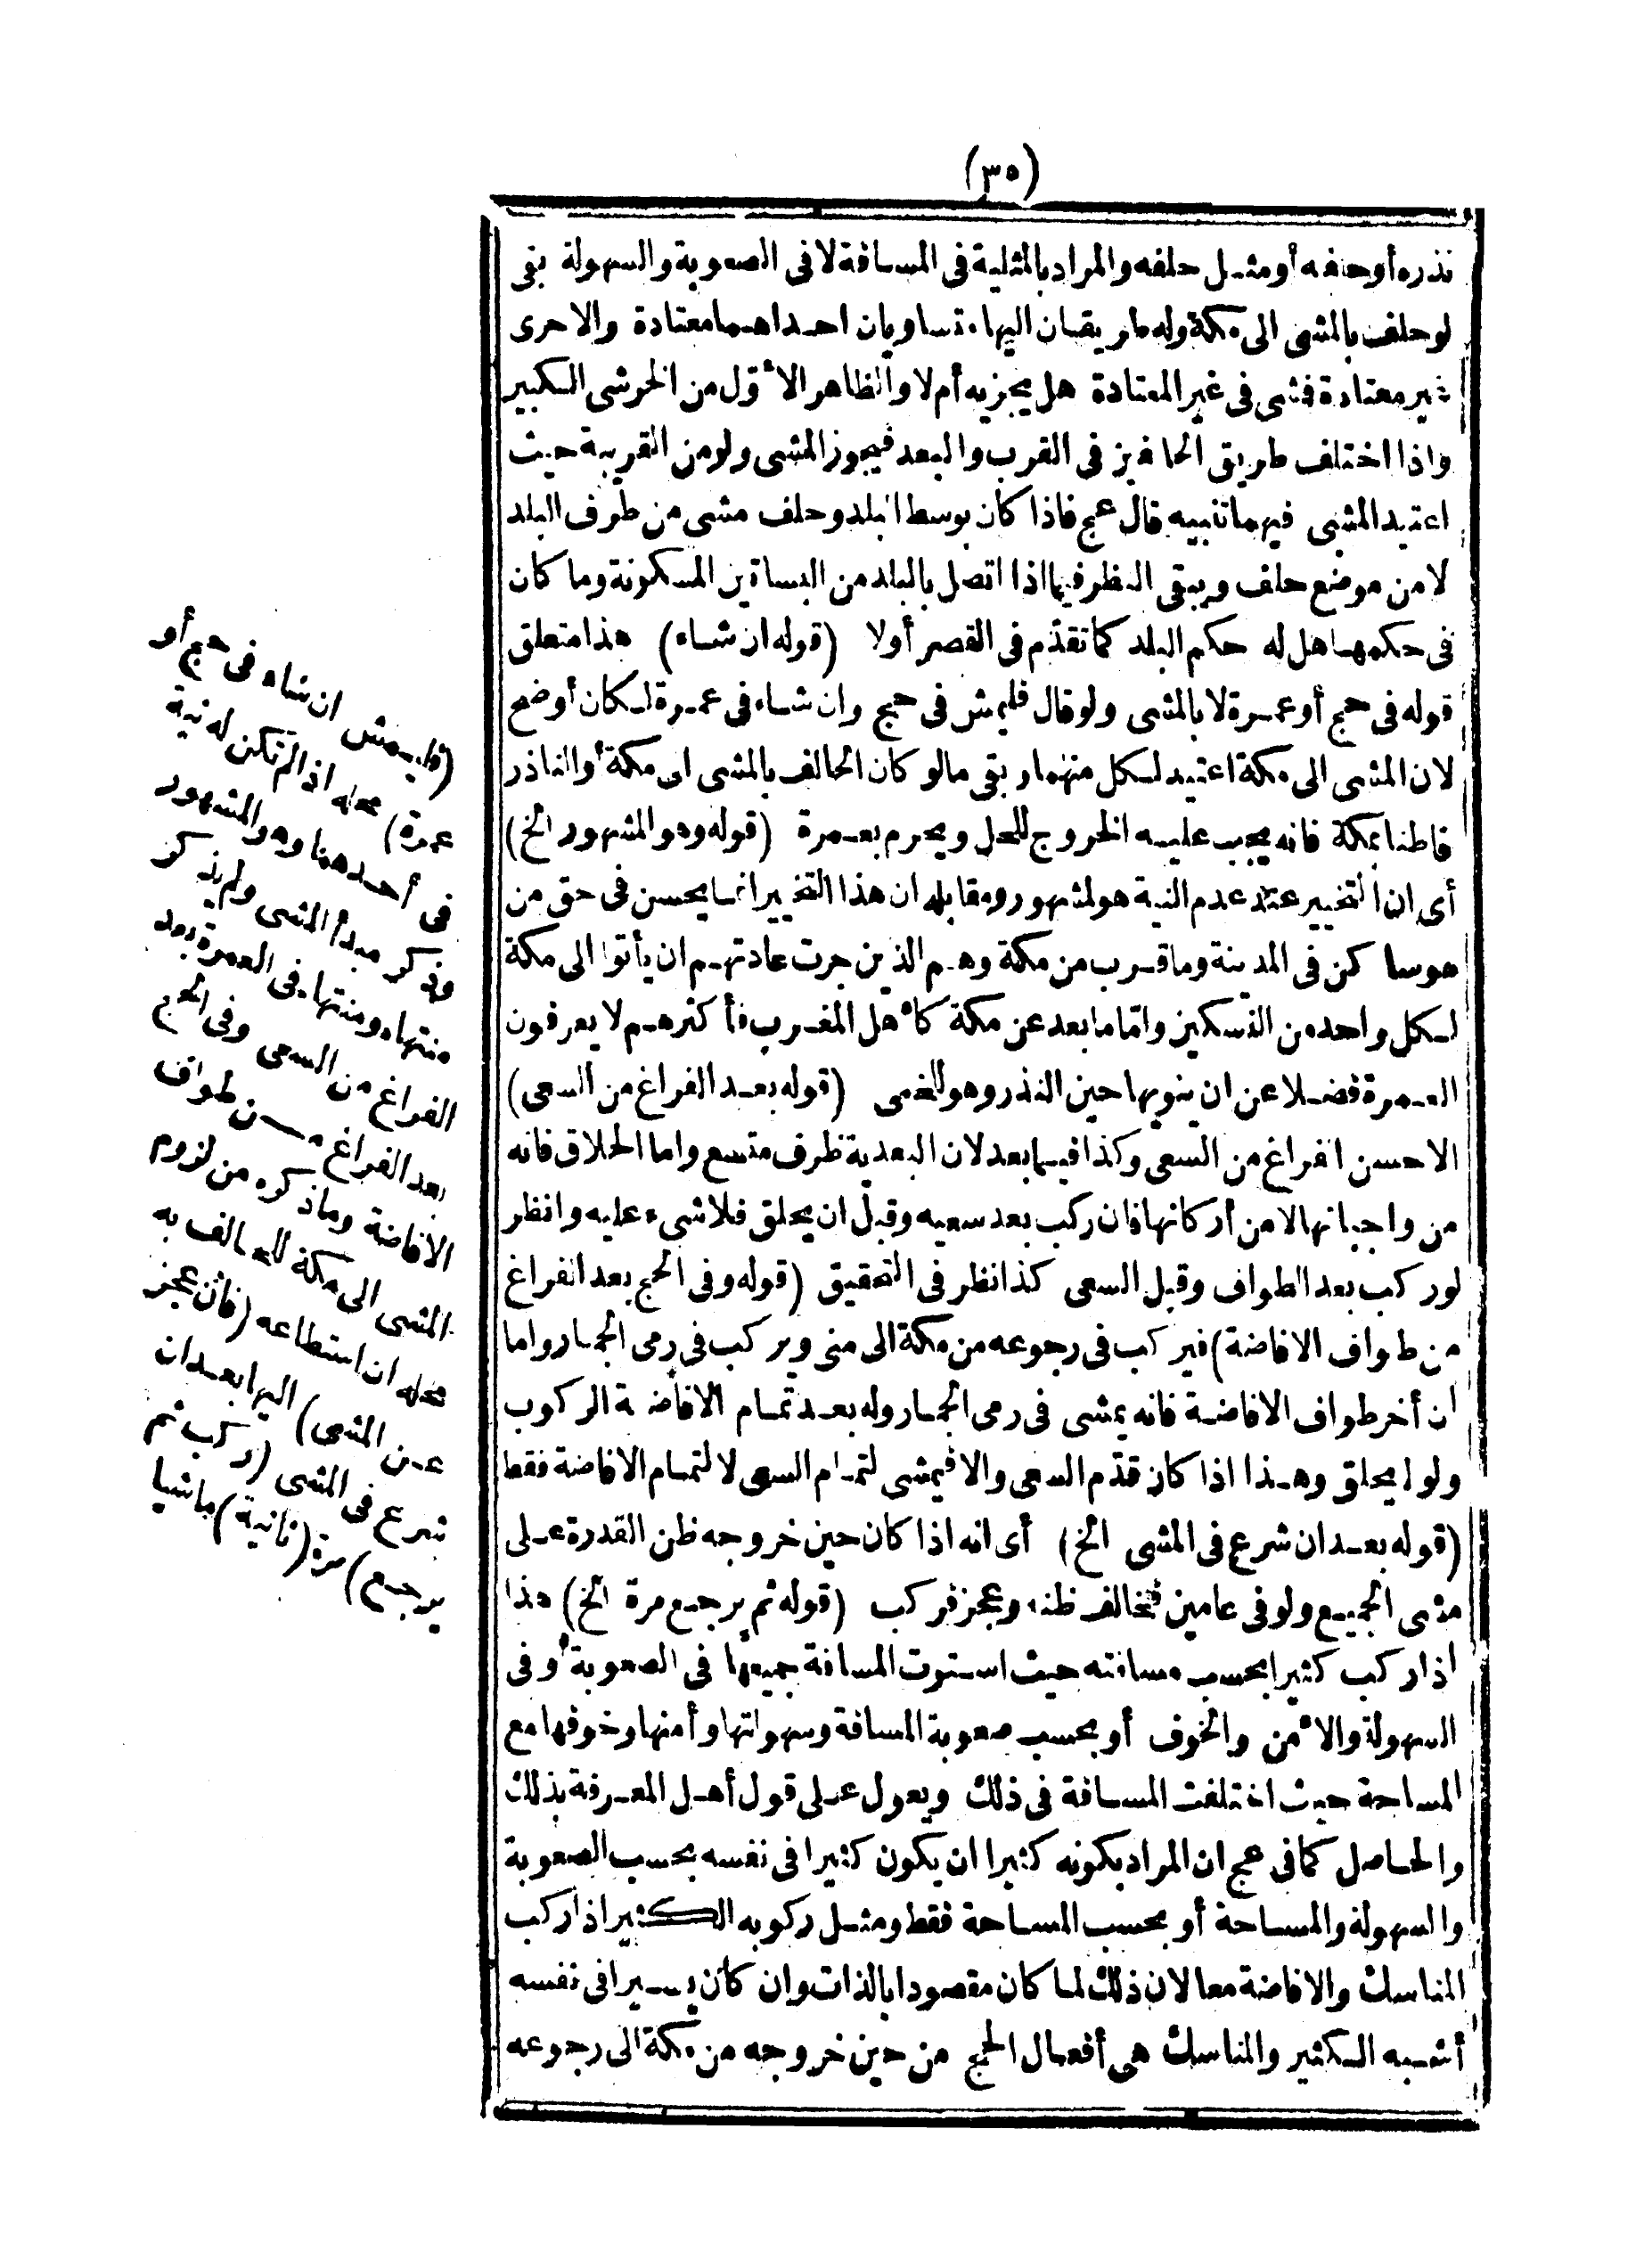 (٣٥)
نذره أو حلفه أو مثل حلفه والمراد بالمثلية فى المسافة لا فى الصعوبة والسهولة بقى
لو حلف بالمشى الى مكة وله طريقان اليها متساويان احداهما معتادة والاخرى
غير معتادة فمشى فى غير المعتادة هل يجزيه أم لا والظاهر الأول من الخرشى الكبير
واذا اختلف طريق الحالفين فى القرب والبعد فيجوز المشى ولو من القريبة حيث
اعتيد المشى فيهما تنبيه قال عج فاذا كان بوسط البلد وحلف مشى من طرف البلد
لا من موضع حلف ويبقى النظر فيما اذا اتصل بالبلد من البساتين المسكونة وما كان
فى حكمها هل له حكم البلد كما تقدّم فى القصر أولا (قوله ان شاء) هذا متعلق
قوله فى حج أو عمرة لا بالمشى ولو قال فليمش فى حج وان شاء فى عمرة لكان أوضح
لان المشى الى مكة اعتيد لكل منهما وبقى ما لو كان الحالف بالمشى الى مكة أو الناذر
قاطنا بمكة فانه يجب عليه الخروج للحل ويحرم بعمرة (قوله وهو المشهور الخ)
أى ان التخيير عند عدم النية هو لمشهور ومقابله ان هذا التخيير انما يحسن فى حق من
هو ساكن فى المدينة وما قرب من مكة وهم الذين جرت عادتهم ان يأتوا الى مكة
لكل واحد من النسكين وامّا ما بعد عن مكة كأهل المغرب فأكثرهم لا يعرفون
العمرة فضلا عن ان ينويها حين النذر وهو للخمى (قوله بعد الفراغ من السعى)
الاحسن الفراغ من السعى وكذا فيما بعد لان البعدية ظرف متسع واما الحلاق فانه
من واجباتها لا من أركانها فان ركب بعد سعيه وقبل ان يحلق فلا شىء عليه وانظر
لو ركب بعد الطواف وقبل السعى كذا نظر فى التحقيق (قوله وفى الحج بعد الفراغ
من طواف الافاضة) فيركب فى رجوعه من مكة الى منى ويركب فى رمى الجمار واما
ان أخر طواف الافاضة فانه يمشى فى رمى الجمار وله بعد تمام الافاضة الركوب
ولو لم يحلق وهذا اذا كان قدّم السعى والا فيمشى لتمام السعى لا لتمام الافاضة فقط
(قوله بعد ان شرع فى المشى الخ) أى انه اذا كان حين خروجه ظن القدرة على
مشى الجميع ولو فى عامين فخالف ظنه وعجز فركب (قوله ثم يرجع مرة الخ) هذا
اذا ركب كثيرا بحسب مسافته حيث استوت المسافة جميعها فى الصعوبة أو فى
السهولة والأمن والخوف أو بحسب صعوبة المسافة وسهولتها وأمنها وخوفها مع
المساحة حيث اختلفت المسافة فى ذلك ويعول على قول أهل المعرفة بذلك
والحاصل كما فى عج ان المراد بكونه كثيرا ان يكون كثيرا فى نفسه بحسب الصعوبة
والسهولة والمساحة أو بحسب المساحة فقط ومثل ركوبه الكثير اذا ركب
المناسك والافاضة معا لان ذلك لما كان مقصودا بالذات وان كان يسيرا فى نفسه
أشبه الكثير والمناسك هى أفعال الحج من حين خروجه من مكة الى رجوعه
(فليمش ان شاء فى حج أو
عمرة) محله اذا لم تكن له نية
فى أحدهما وهو المشهور
وذكر مبدأ المشى ولم يذكر
منتهاه ومنتهاه فى العمرة بعد
الفراغ من السعى وفى الحج
بعد الفراغ من طواف
الافاضة وما ذكره من لزوم
المشى الى مكة للحالف به
محله ان استطاعه (فان عجز
عن المشى) اليها بعد ان
شرع فى المشى (ركب ثم
يرجع) مرة (ثانية) ماشيا